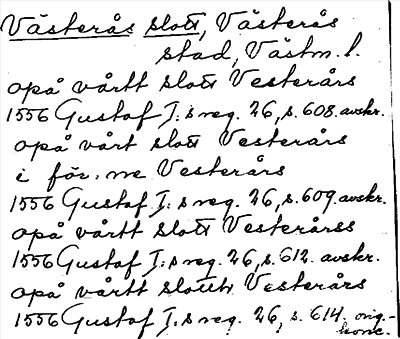 Västerås slott, Västerås
stad, Västm. l.
opå vårtt slott Vesterårs
1556 Gustaf I:s reg. 26, s. 608. avskr.
opå vårt slott Vesterårs
i för:ne Vesterårs
1556 Gustaf I:s reg. 26, s. 609. avskr.
opå vårtt slott Vesterårss
1556 Gustaf I:s reg. 26, s. 612. avskr.
opå vårtt slottt Vesterårs
1556 Gustaf I:s reg. 26, s. 614. orig.-
konc.